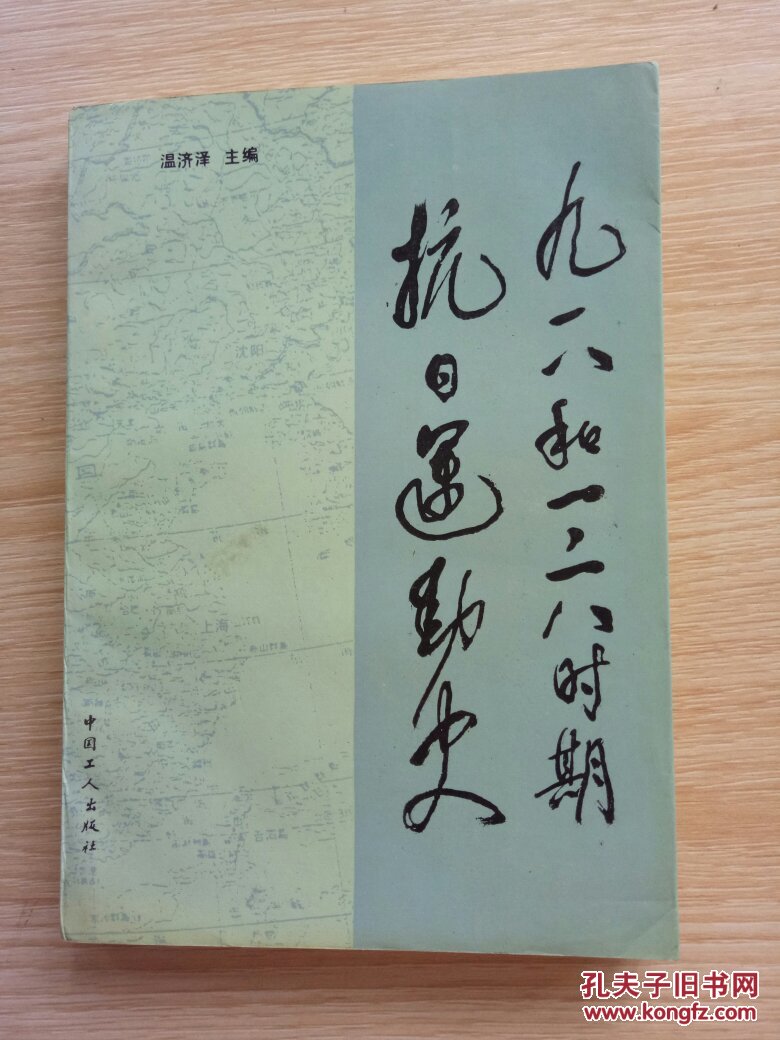 温济泽 主编
九一八和一二八时期
抗日运动史
沈阳
上海
中国工人出版社
孔夫子旧书网
www.kongfz.com